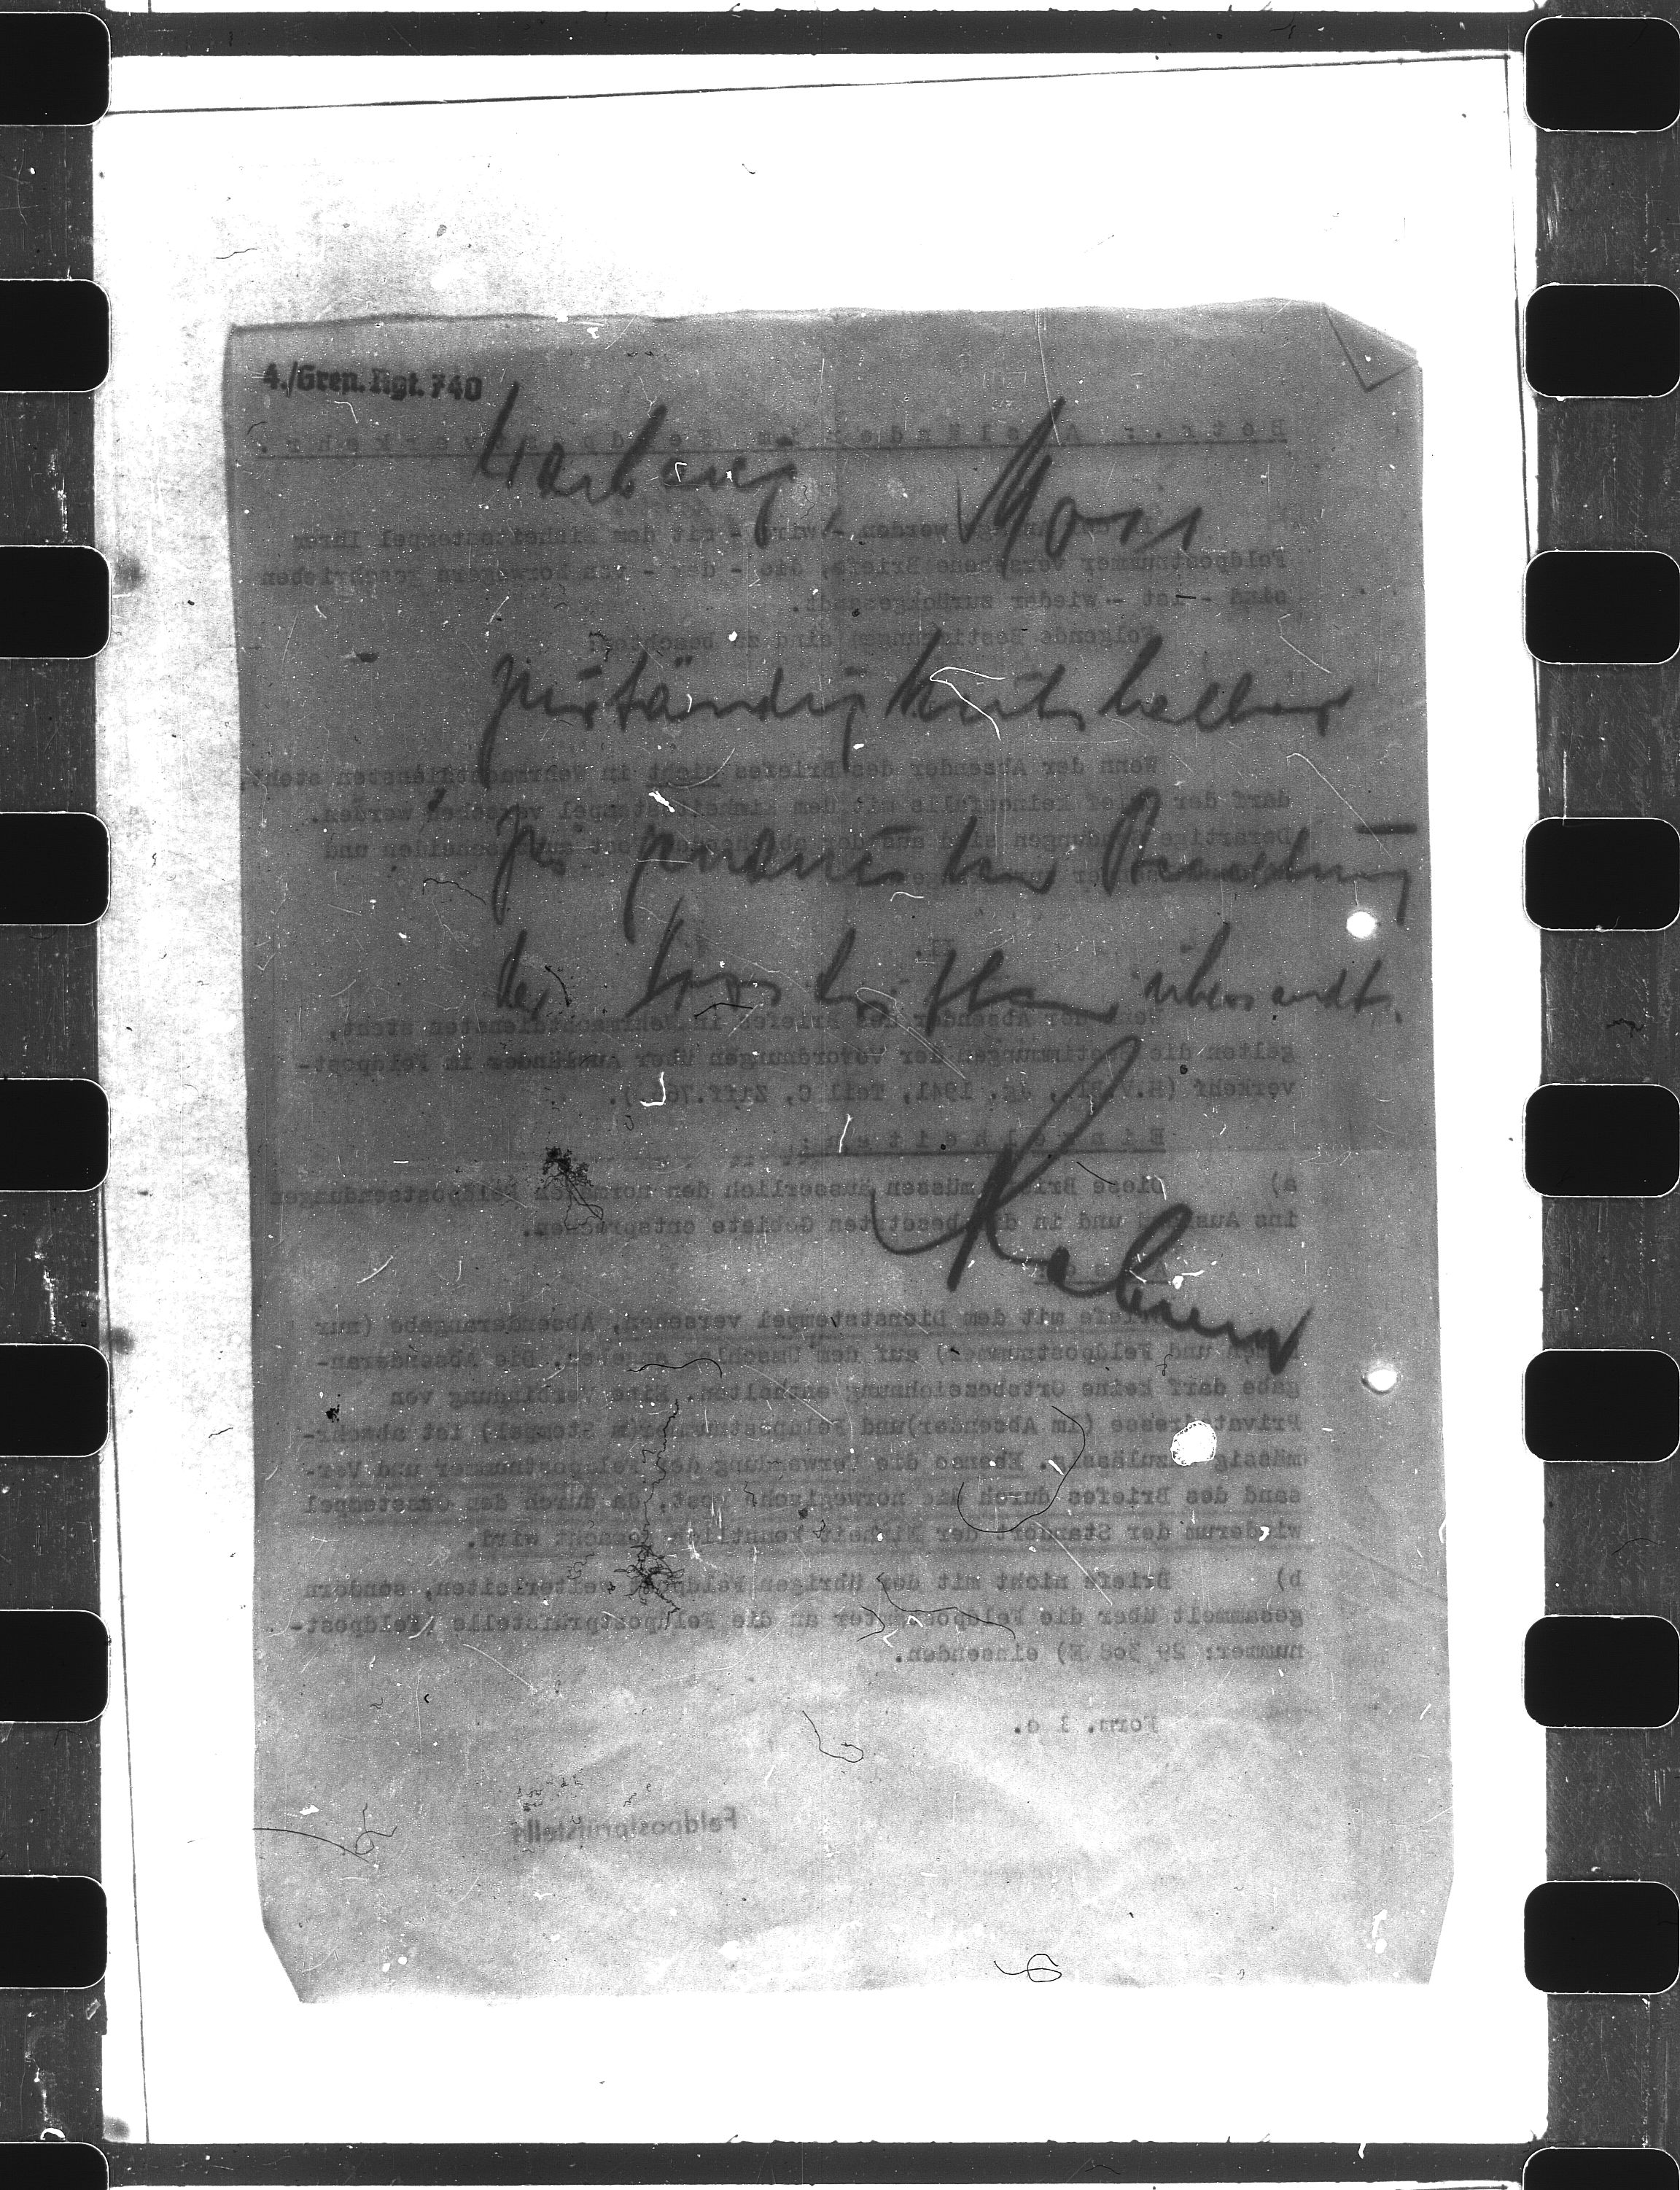 4./Gren. Rgt. 740
Moss
zuständigkeitshalber
zur genauesten Beachtung
der Vorschriften übersandt.
Betr.: Ausländer im Feldpostverkehr.
werden - wird - mit dem Einheitsstempel Ihrer
Feldpostnummer versehene Briefe, die - der - von Norwegern geschrieben
sind - ist - wieder zurückgesandt.
Folgende Bestimmungen sind zu beachten:
Wenn der Absender des Briefes nicht in Wehrmachtdiensten steht,
darf der Brief keinenfalls mit dem Einheitsstempel versehen werden.
Derartige Sendungen sind aus der abgehenden Post auszuscheiden und
II.
Wenn der Absender des Briefes in Wehrmachtdiensten steht,
gelten die Bestimmungen der Verordnungen über Ausländer im Feldpost-
verkehr (H.V.Bl., Jg. 1941, Teil C, Ziff.
Einzelheiten:
a) Diese Briefe müssen äusserlich den normalen Feldpostsendungen
ins Ausland und in die besetzten Gebiete entsprechen.
Briefe mit dem Dienststempel versehen, Absenderangabe (nur
Namen und Feldpostnummer) auf dem Umschlag angeben. Die Absenderan-
gabe darf keine Ortsbezeichnung enthalten. Eine Verbindung von
Privatadresse (im Absender) und Feldpostnummer (im Stempel) ist abwehr-
mässig unzulässig. Ebenso die Verwendung der Feldpostnummer und Ver-
sand des Briefes durch die norwegische Post, da durch den Ortsstempel
wiederum der Standort der Einheit kenntlich gemacht wird.
b) Briefe nicht mit der übrigen Feldpost weiterleiten, sondern
gesammelt über die Feldpostämter an die Feldpostprüfstelle (Feldpost-
nummer: 29 308 E) einsenden.
Form. 3 c.
Feldpostprüfstelle